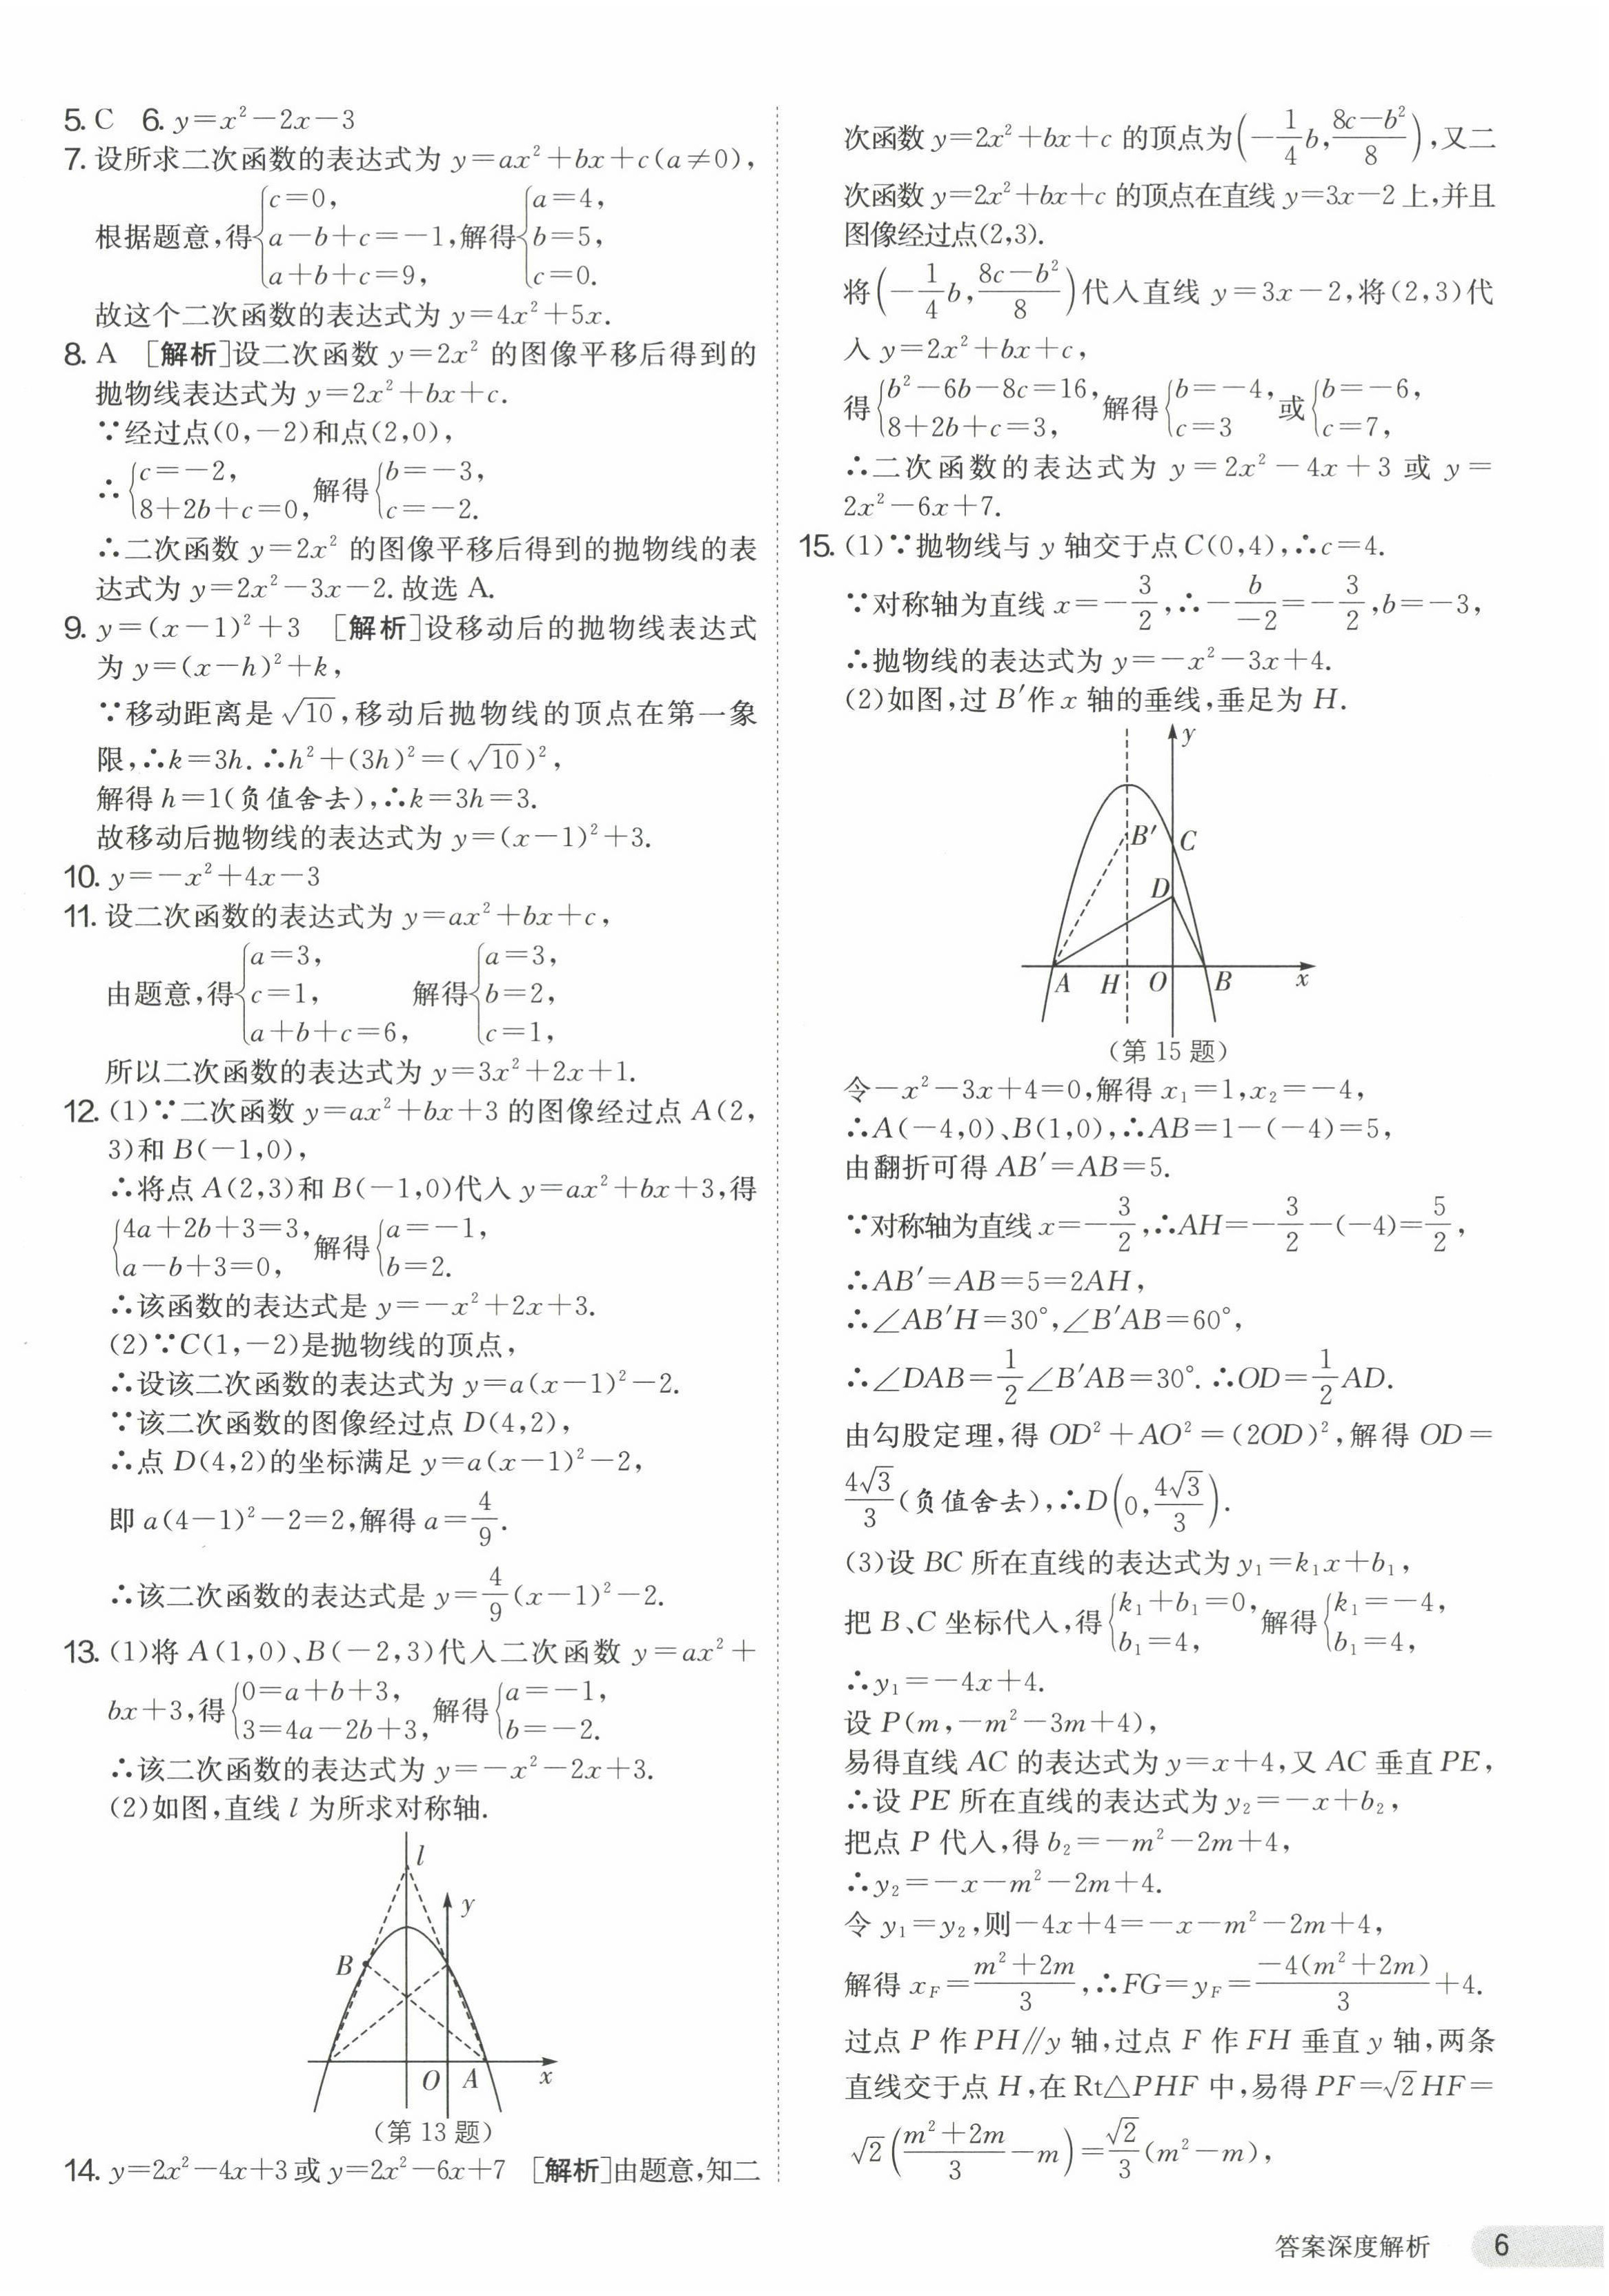 5. C 6. y=x²-2x-3
7. 设所求二次函数的表达式为 y=ax²+bx+c(a≠0),
根据题意,得{c=0, a-b+c=-1, a+b+c=9, 解得{a=4, b=5, c=0.
故这个二次函数的表达式为 y=4x²+5x.
8. A [解析]设二次函数 y=2x² 的图像平移后得到的
抛物线表达式为 y=2x²+bx+c.
∵经过点(0,-2)和点(2,0),
∴{c=-2, 8+2b+c=0, 解得{b=-3, c=-2.
∴二次函数 y=2x² 的图像平移后得到的抛物线的表
达式为 y=2x²-3x-2. 故选 A.
9. y=(x-1)²+3 [解析]设移动后的抛物线表达式
为 y=(x-h)²+k,
∵移动距离是√10,移动后抛物线的顶点在第一象
限,∴k=3h. ∴h²+(3h)²=(√10)²,
解得 h=1(负值舍去),∴k=3h=3.
故移动后抛物线的表达式为 y=(x-1)²+3.
10. y=-x²+4x-3
11. 设二次函数的表达式为 y=ax²+bx+c,
由题意,得{a=3, c=1, a+b+c=6, 解得{a=3, b=2, c=1,
所以二次函数的表达式为 y=3x²+2x+1.
12. (1)∵二次函数 y=ax²+bx+3 的图像经过点 A(2,
3)和 B(-1,0),
∴将点 A(2,3)和 B(-1,0)代入 y=ax²+bx+3,得
{4a+2b+3=3, a-b+3=0, 解得{a=-1, b=2.
∴该函数的表达式是 y=-x²+2x+3.
(2)∵C(1,-2)是抛物线的顶点,
∴设该二次函数的表达式为 y=a(x-1)²-2.
∵该二次函数的图像经过点 D(4,2),
∴点 D(4,2)的坐标满足 y=a(x-1)²-2,
即 a(4-1)²-2=2,解得 a=4/9.
∴该二次函数的表达式是 y=4/9(x-1)²-2.
13. (1)将 A(1,0)、B(-2,3)代入二次函数 y=ax²+
bx+3,得{0=a+b+3, 3=4a-2b+3, 解得{a=-1, b=-2.
∴该二次函数的表达式为 y=-x²-2x+3.
(2)如图,直线 l 为所求对称轴.
l
y
B
O A x
(第 13 题)
14. y=2x²-4x+3 或 y=2x²-6x+7 [解析]由题意,知二
次函数 y=2x²+bx+c 的顶点为(-1/4 b, (8c-b²)/8),又二
次函数 y=2x²+bx+c 的顶点在直线 y=3x-2 上,并且
图像经过点(2,3).
将(-1/4 b, (8c-b²)/8)代入直线 y=3x-2,将(2,3)代
入 y=2x²+bx+c,
得{b²-6b-8c=16, 8+2b+c=3, 解得{b=-4, c=3 或{b=-6, c=7,
∴二次函数的表达式为 y=2x²-4x+3 或 y=
2x²-6x+7.
15. (1)∵抛物线与 y 轴交于点 C(0,4),∴c=4.
∵对称轴为直线 x=-3/2,∴-b/-2=-3/2,b=-3,
∴抛物线的表达式为 y=-x²-3x+4.
(2)如图,过 B′作 x 轴的垂线,垂足为 H.
y
B′ C
D
A H O B x
(第 15 题)
令-x²-3x+4=0,解得 x₁=1,x₂=-4,
∴A(-4,0)、B(1,0),∴AB=1-(-4)=5,
由翻折可得 AB′=AB=5.
∵对称轴为直线 x=-3/2,∴AH=-3/2-(-4)=5/2,
∴AB′=AB=5=2AH,
∴∠AB′H=30°,∠B′AB=60°,
∴∠DAB=1/2∠B′AB=30°. ∴OD=1/2AD.
由勾股定理,得 OD²+AO²=(2OD)²,解得 OD=
4√3/3(负值舍去),∴D(0,4√3/3).
(3)设 BC 所在直线的表达式为 y₁=k₁x+b₁,
把 B、C 坐标代入,得{k₁+b₁=0, b₁=4, 解得{k₁=-4, b₁=4,
∴y₁=-4x+4.
设 P(m,-m²-3m+4),
易得直线 AC 的表达式为 y=x+4,又 AC 垂直 PE,
∴设 PE 所在直线的表达式为 y₂=-x+b₂,
把点 P 代入,得 b₂=-m²-2m+4,
∴y₂=-x-m²-2m+4.
令 y₁=y₂,则-4x+4=-x-m²-2m+4,
解得 x_F=(m²+2m)/3,∴FG=y_F=-4(m²+2m)/3+4.
过点 P 作 PH∥y 轴,过点 F 作 FH 垂直 y 轴,两条
直线交于点 H,在 Rt△PHF 中,易得 PF=√2HF=
√2((m²+2m)/3-m)=√2/3(m²-m),
答案深度解析 6